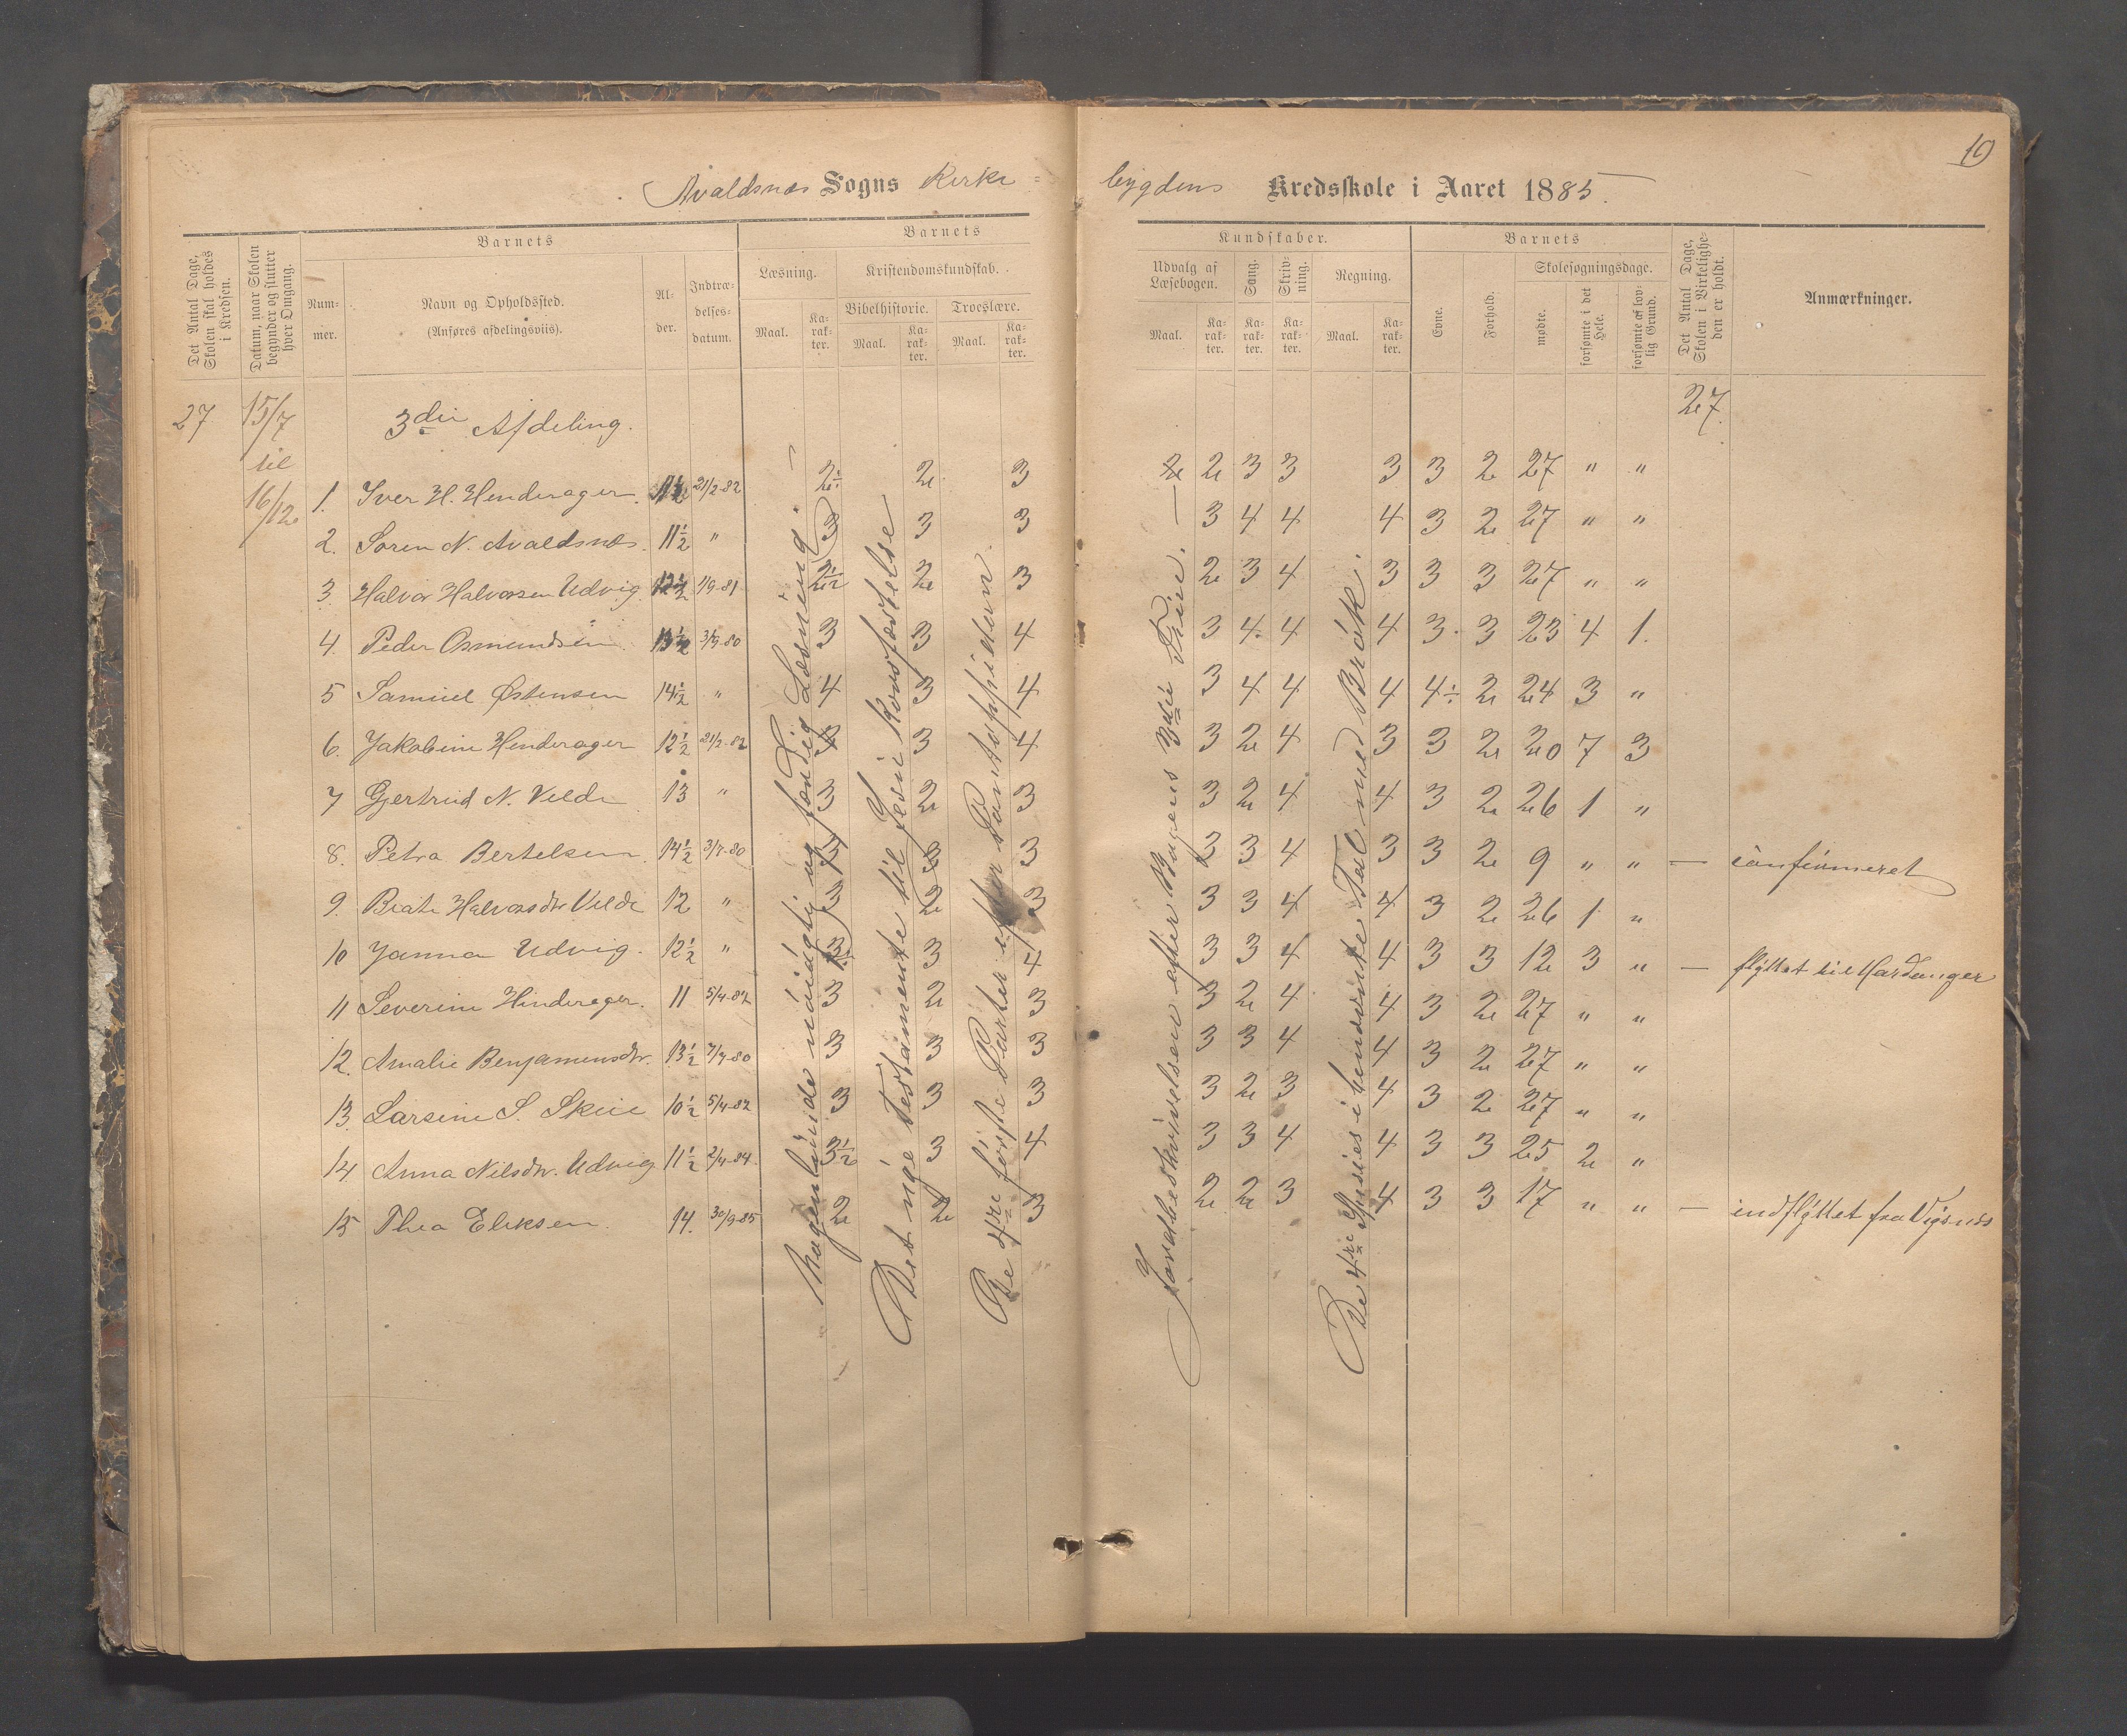 10
Avaldsnes Sogns Kirke-
bygdens Kredsskole i Aaret 1885.
Det Antal Dage, Skolen skal holdes i Kredsen.
Datum, naar Skolen begynder og slutter hver Omgang.
Barnets
Nummer.
Navn og Opholdssted.
(Anføres afdelingsviis).
Alder.
Indtrædelsesdatum.
Barnets
Læsning.
Maal.
Karakter.
Kristendomskundskab.
Bibelhistorie.
Maal.
Karakter.
Troeslære.
Maal.
Karakter.
Kundskaber.
Udvalg af Læsebogen.
Maal.
Karakter.
Sang.
Karakter.
Skrivning.
Karakter.
Regning.
Maal.
Karakter.
Barnets
Evne.
Forhold.
Skolesøgningsdage.
mødte.
forsømte i det Hele.
forsømte af lovlig Grund.
Det Antal Dage, Skolen i Virkeligheden er holdt.
Anmærkninger.
27 15/7 3die Afdeling. 27
til
16/12
1. Iver H. Henderager. 21/2-82 2 3 2 3 3 3 3 2 27 " "
2. Søren N. Avaldsnes. 11½ " 3 3 3 3 4 4 4 3 2 27 " "
3. Halvor Halvorsen Udvig 12½ 1/9-81 2½ 2 3 2 3 4 3 3 3 27 " "
4. Peder Osmundsen 13½ 80 3 3 4 3 4 4 4 3 3 23 4 1.
5 Samuel Østensen 14½ " 4 3 4 3 4 4 4 4÷ 2 24 3 "
6. Jakobine Henderager 12½ 21/2-82 3 4 3 2 4 3 3 2 20 7 3
7 Gjertrud N. Velde 13 " 3 2 3 3 2 4 4 3 2 26 1 "
8. Petra Bertelsen. 14½ 3/7-80 3 3 3 3 3 4 3 3 2 9 " " — confirmeret
9. Beate Halvorsdtr Velde 12 " 3 2 3 3 3 4 4 3 2 26 1 "
10 Janna Udvig. 12½ " 3 4 3 3 4 4 3 3 12 3 " — flyttet til Hardanger
11 Severine Hinderager. 11 5/4-82 3 2 3 3 2 4 4 3 2 27 " "
12. Amalie Benjaminsdtr. 13½ 7/7-80 3 3 3 3 3 4 4 3 2 27 " "
13. Larsine S. Skeie 10½ 5/4-82 3 3 3 3 2 3 4 3 2 27 " "
14 Anna Nilsdtr. Udvig 11½ 2/4-84. 3½ 3 4 3 3 4 4 3 3 25 2 "
15 Thea Eliksen. 14. 30/9-85 2 2 3 2 2 3 4 3 3 17 " " — indflyttet fra Vigsnes
Nogenlunde nøiagtig og færdig Læsning. —
Det nye Testamente til Jesu Korsfæstelse
De 4re første Parter efter Pontoppidan.
Jordbeskrivelsen efter Bogens 3die Trin. —
De 4re Species i benævnte Tal med Brøk.